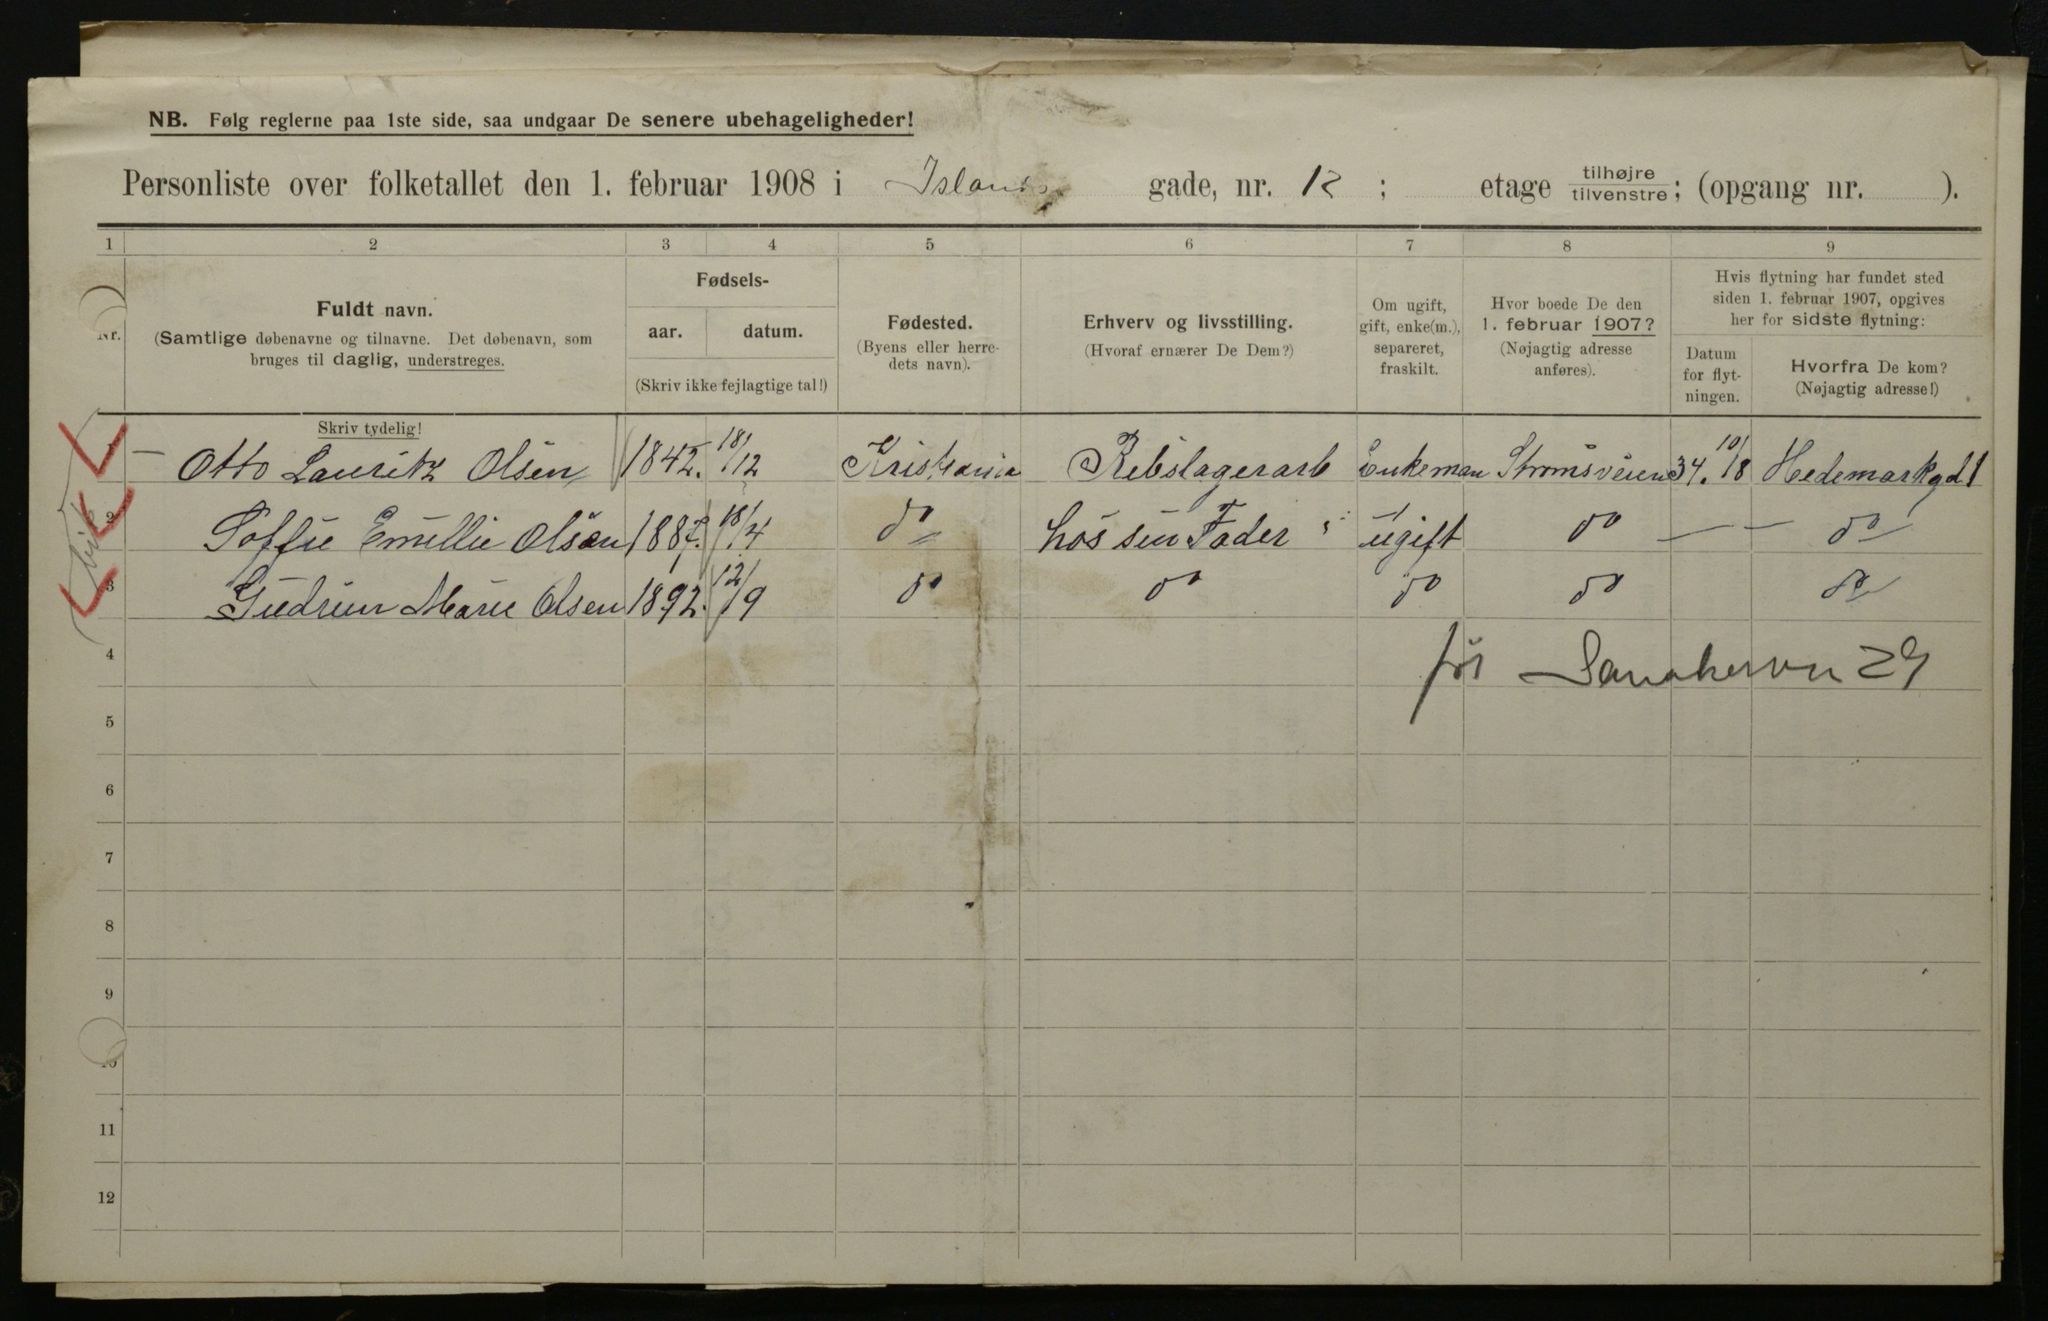 NB. Følg reglerne paa 1ste side, saa undgaar De senere ubehageligheder!
Personliste over folketallet den 1. februar 1908 i Islands gade, nr. 12 ; etage tilhøjre tilvenstre; (opgang nr. ).
1 2 3 4 5 6 7 8 9
Nr.
Fuldt navn.
(Samtlige døbenavne og tilnavne. Det døbenavn, som
bruges til daglig, understreges.
Fødsels-
aar. datum.
(Skriv ikke fejlagtige tal!)
Fødested.
(Byens eller herre-
dets navn).
Erhverv og livsstilling.
(Hvoraf ernærer De Dem?)
Om ugift,
gift, enke(m.),
separeret,
fraskilt.
Hvor boede De den
1. februar 1907?
(Nøjagtig adresse
anføres).
Hvis flytning har fundet sted
siden 1. februar 1907, opgives
her for sidste flytning:
Datum
for flyt-
ningen.
Hvorfra De kom?
(Nøjagtig adresse!)
Skriv tydelig!
1 Otto Lauritz Olsen 1842. 18/12 Kristiania Rebslagerarb Enkeman Strømsveien 34. 10/8 Hedemarkgd 1
2 Soffie Emillie Olsen 1887. 18/4 do hos sin Fader ugift do — — do
3 Gudrun Marie Olsen 1892. 12/9 do do do do do
4 før 29
5
6
7
8
9
10
11
12